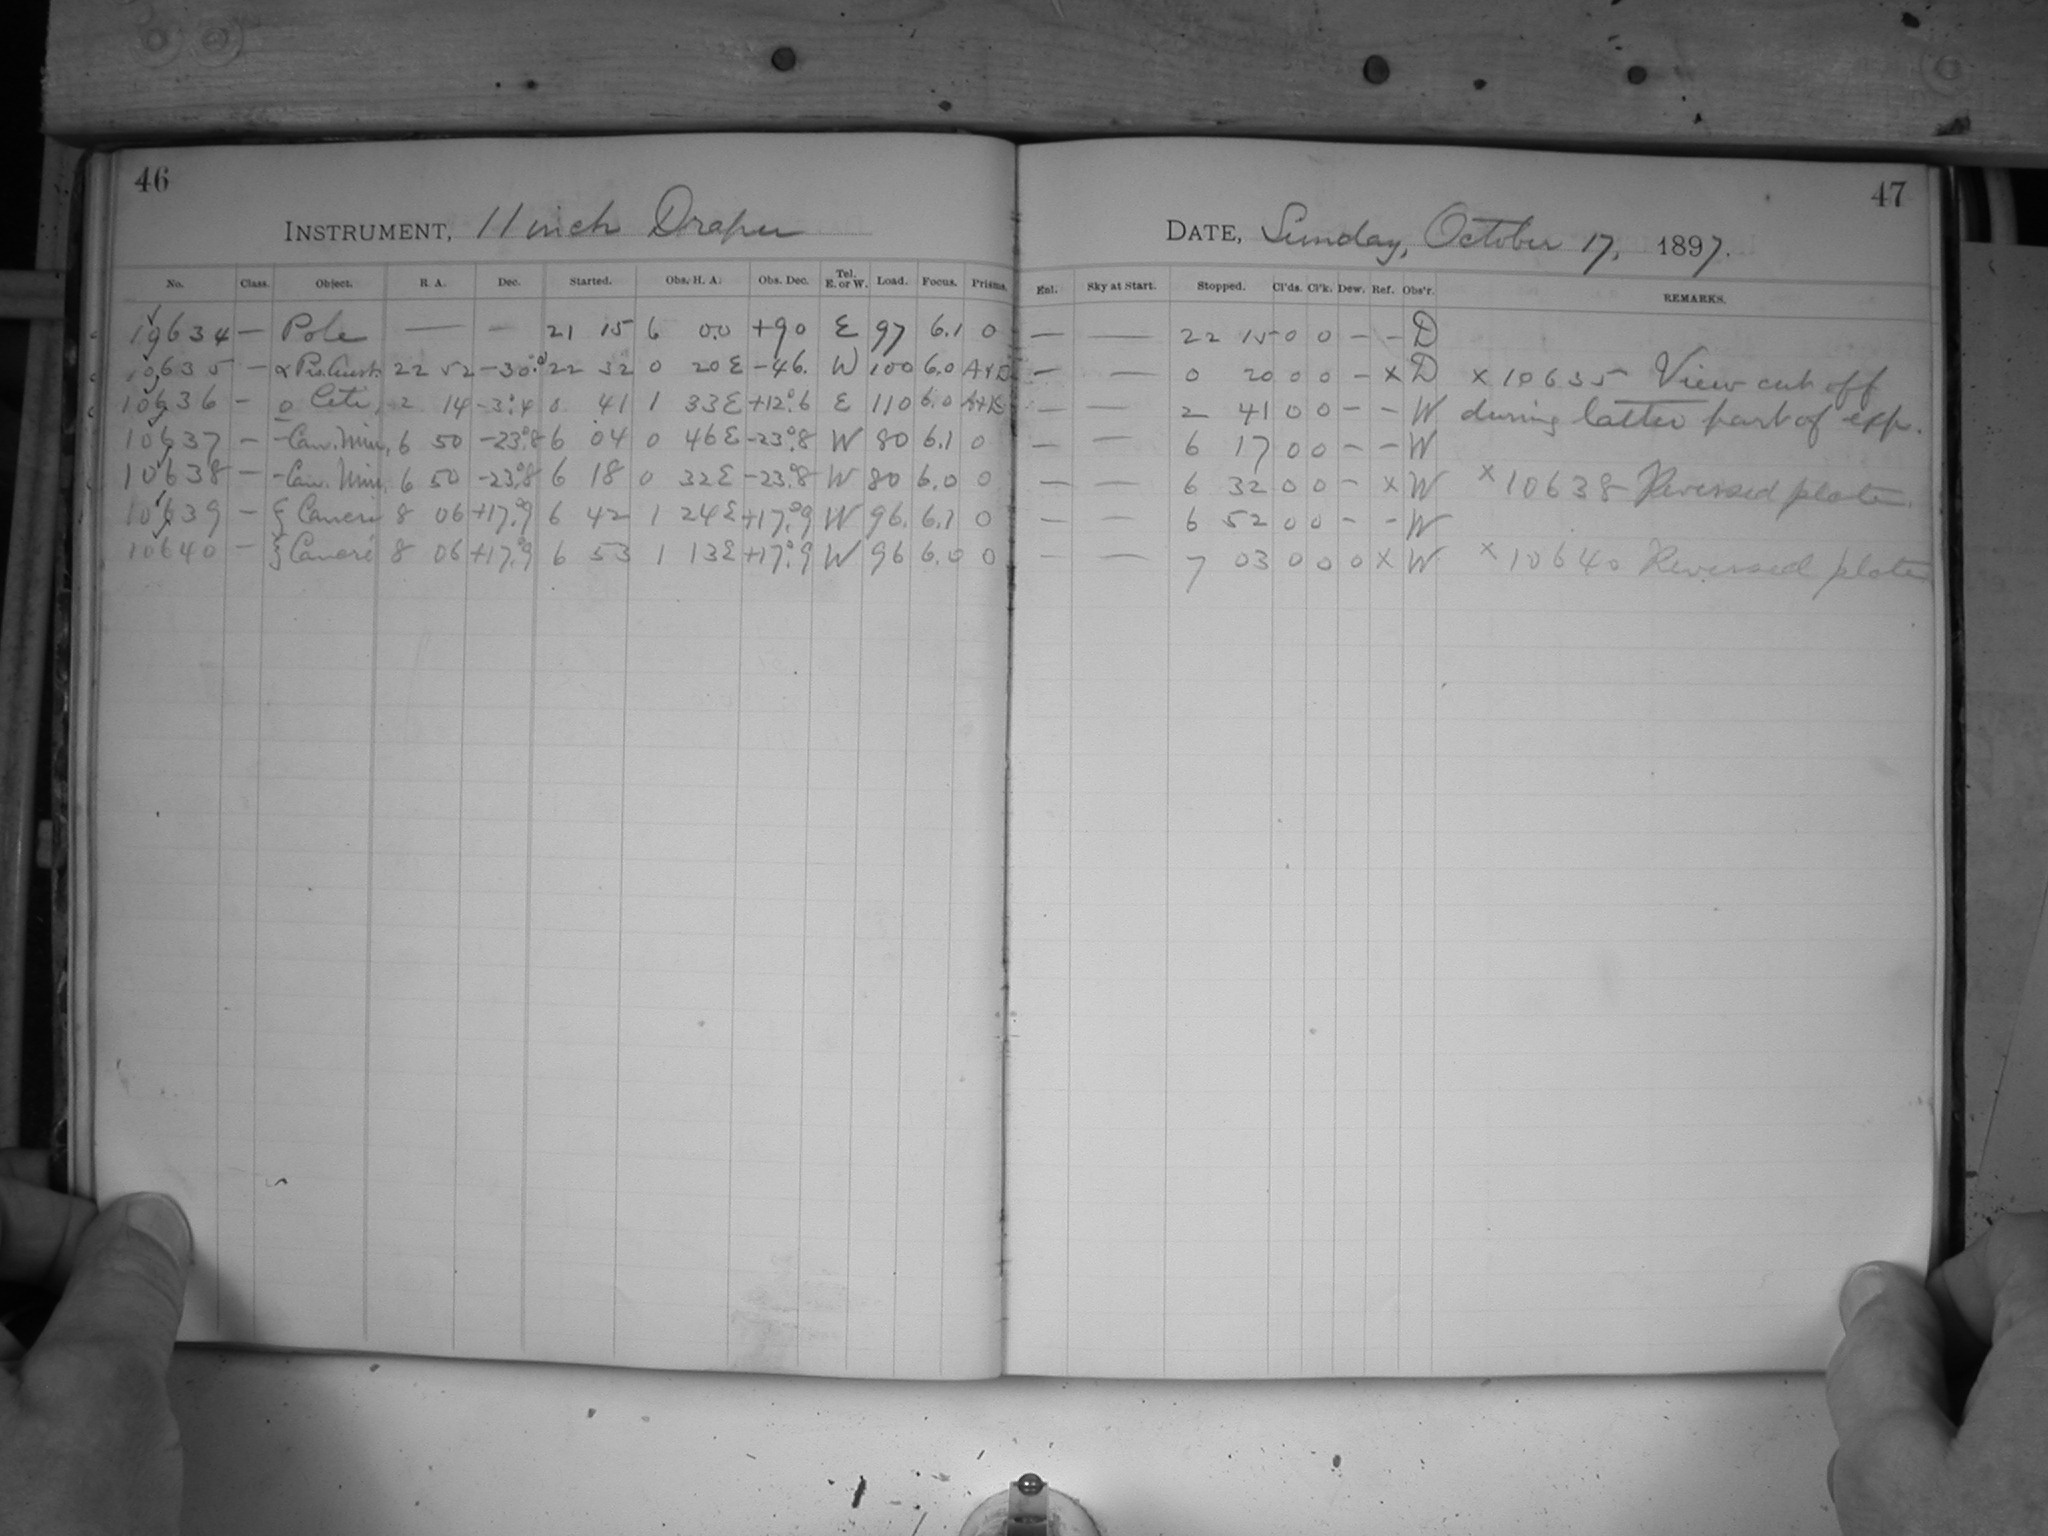 46
INSTRUMENT, 11 inch Draper
No. Class. Object. R. A. Dec. Started. Obs. H. A. Obs. Dec. Tel. E. or W. Load. Focus. Prisms.
10634 — Pole — — 21 15 6 00 +90 E 97 6.1 0
10635 — α Pis. Aust. 22 52 -30°.0 22 32 0 20 E -46. W 100 6.0
10636 — o Ceti, 2 14 -3°.4 0 41 1 33 E +12°.6 E 110 6.0
10637 — - Can. Min, 6 50 -23°.8 6 04 0 46 E -23°.8 W 80 6.1 0
10638 — - Can. Min. 6 50 -23°.8 6 18 0 32 E -23°.8 W 80 6.0 0
10639 — ζ Cancri 8 06 +17°.9 6 42 1 24 E +17°.9 W 96. 6.1 0
10640 — ζ Cancri 8 06 +17°.9 6 53 1 13 E +17°.9 W 96 6.0 0
47
DATE, Sunday, October 17, 1897.
Enl. Sky at Start. Stopped. Cl'ds. Cl'k. Dew. Ref. Obs'r. REMARKS.
— — 22 15 0 0 - - D
— — 0 20 0 0 - x D x 10635 View cut off
— — 2 41 0 0 - - W during latter part of exp.
— — 6 17 0 0 - - W
— — 6 32 0 0 - x W x 10638 Reversed plate.
— — 6 52 0 0 - - W
— — 7 03 0 0 0 x W x 10640 Reversed plate